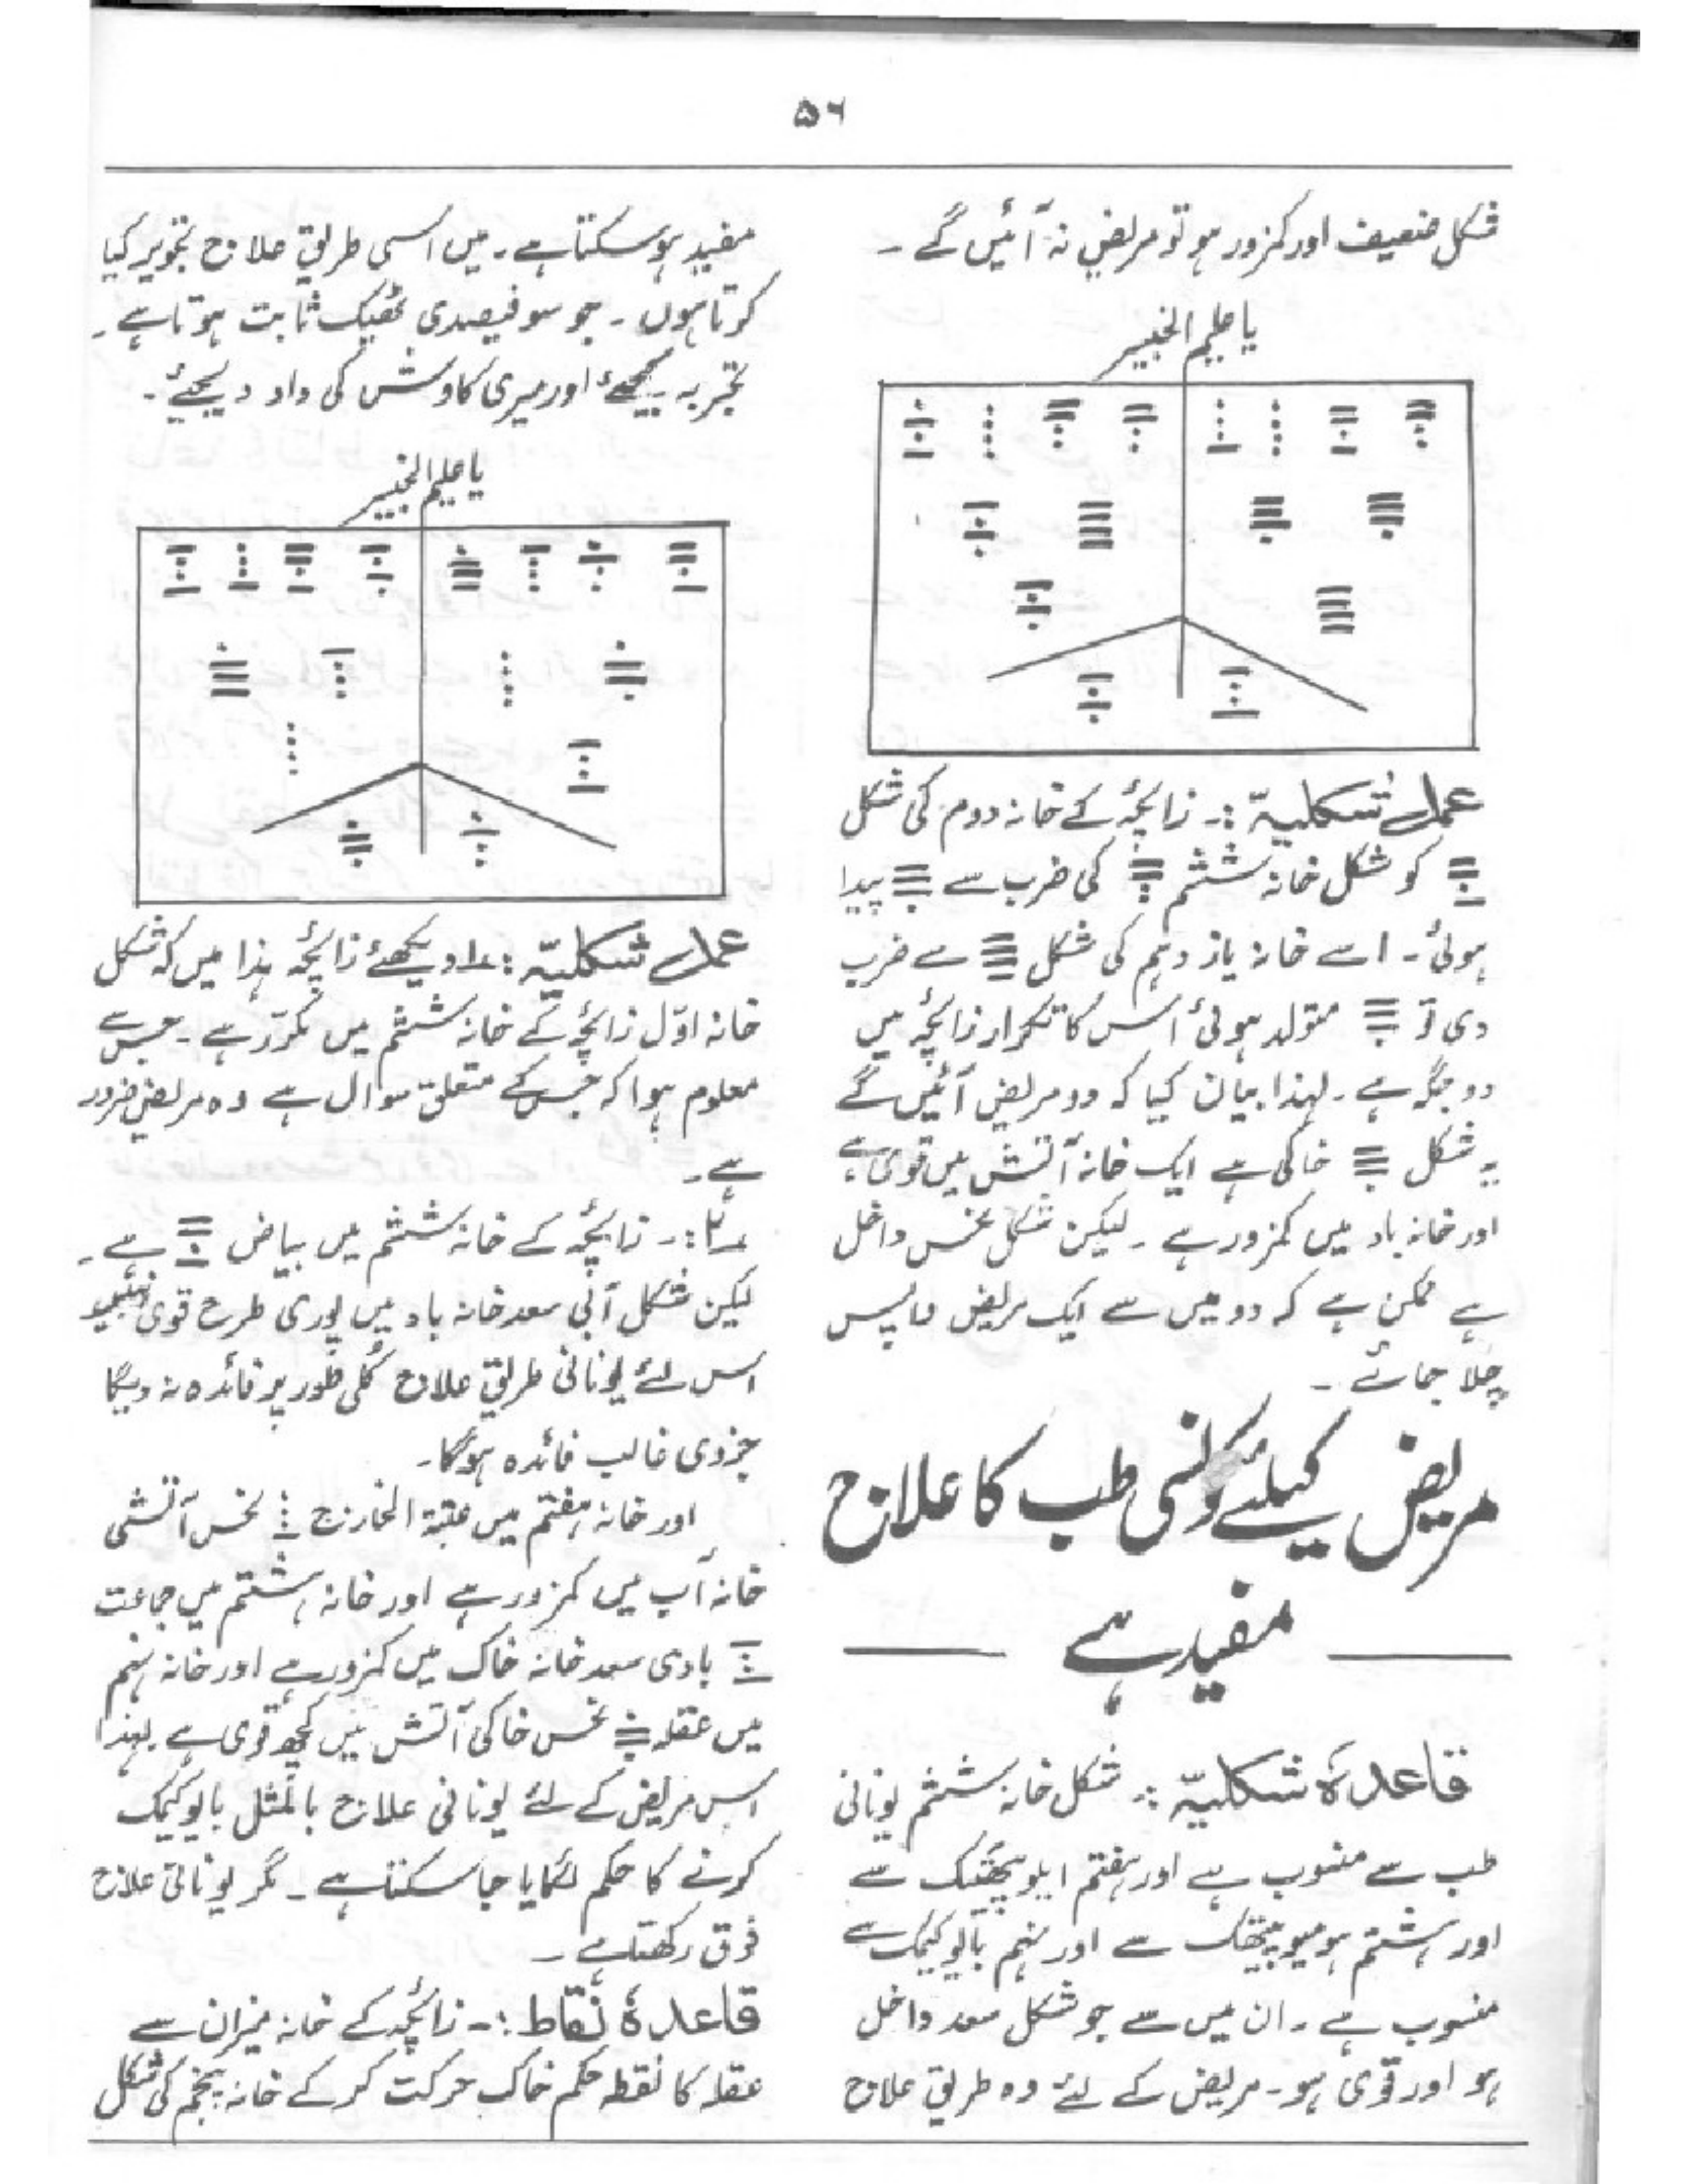 ۵۶
شکل ضعیف اور کمزور ہو تو مریض نہ آئیں گے ۔
یا علیم الخبیر
عمل شکلیہّ :۔ زائچہ کے خانہ دوم کی شکل
کو شکل خانہ ششم کی ضرب سے پیدا
ہوئی ۔ اسے خانہ یاز دہم کی شکل سے ضرب
دی تو متولد ہوئی اس کا تکرار زائچہ میں
دو جگہ ہے ۔ لہذا بیان کیا کہ دو مریض آئیں گے
یہ شکل خاکی ہے ایک خانہ آتش میں قوی ہے
اور خانہ باد میں کمزور ہے ۔ لیکن شکل نحس داخل
ہے ممکن ہے کہ دو میں سے ایک مریض واپس
چلا جائے ۔
مریض کیلئے کونسی طب کا علاج
مفید ہے
قاعدہ شکلیہّ :۔ شکل خانہ ششم یونانی
طب سے منسوب ہے اور ہفتم ایلوپیتھک سے
اور ہشتم ہومیوپیتھک سے اور نہم بائیوکیمک سے
منسوب ہے ۔ ان میں سے جو شکل سعد داخل
ہو اور قوی ہو ۔ مریض کے لئے وہ طریق علاج
مفید ہو سکتا ہے ۔ میں اسی طریق علاج تجویز کیا
کرتا ہوں ۔ جو سو فیصدی ٹھیک ثابت ہوتا ہے ۔
تجربہ کیجئے اور میری کاوش کی داد دیجئے ۔
یا علیم الخبیر
عمل شکلیہّ : ۱۔ دیکھئے زائچہ ہذا میں کہ شکل
خانہ اوّل زائچے کے خانہ ششم میں مکرّر ہے ۔ جس سے
معلوم ہوا کہ جس کے متعلق سوال ہے وہ مریض ضرور
ہے ۔
۲ :۔ زائچہ کے خانہ ششم میں بیاض ہے ۔
لیکن شکل آبی سعد خانہ باد میں پوری طرح قوی نہیں
اس لئے یونانی طریق علاج کُلی طور پر فائدہ نہ دیگا
جزوی غالب فائدہ ہوگا ۔
اور خانہ ہفتم میں عتبۃ الخارج نحس آتشی
خانہ آب میں کمزور ہے اور خانہ ہشتم میں جماعت
بادی سعد خانہ خاک میں کمزور ہے اور خانہ نہم
میں عقلہ نحس خاکی آتش میں کچھ قوی ہے لہذا
اس مریض کے لئے یونانی علاج بالمثل بائیوکیمک
کرنے کا حکم لگایا جا سکتا ہے ۔ مگر یونانی علاج
فوق رکھتا ہے ۔
قاعدہ نقاط :۔ زائچہ کے خانہ میزان سے
عقلہ کا نقطہ حکم خاک حرکت کر کے خانہ پنجم کی شکل